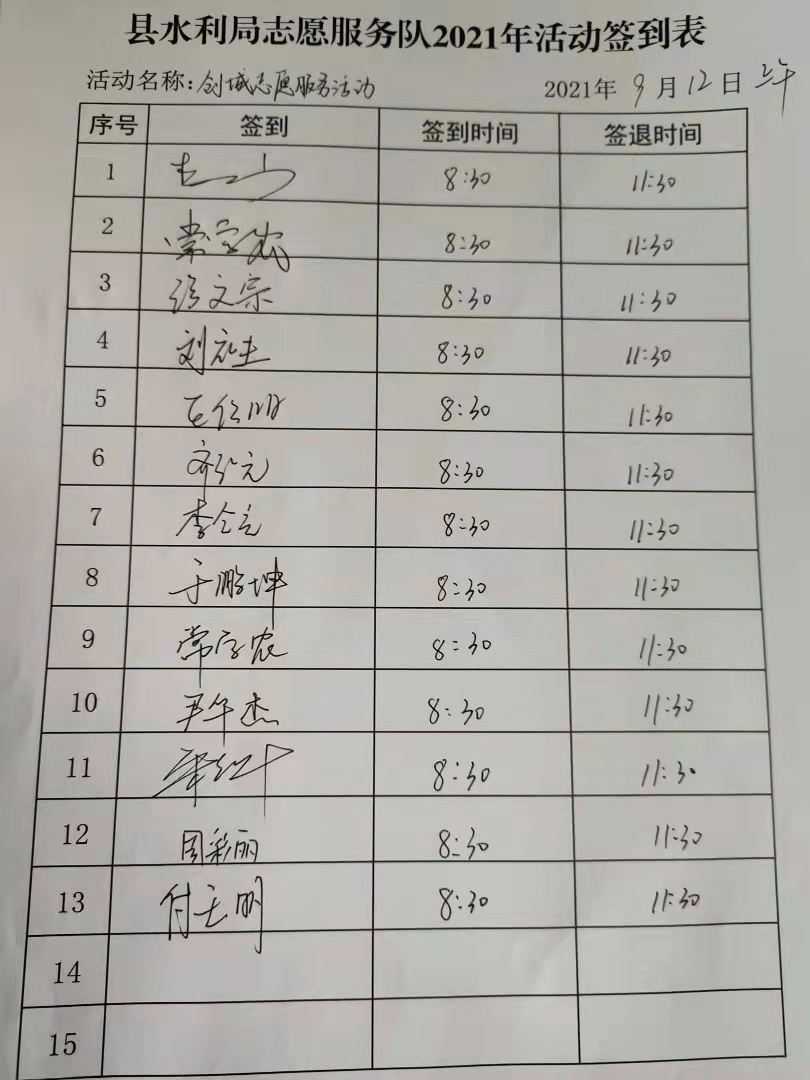 县水利局志愿服务队2021年活动签到表
活动名称:创城志愿服务活动 2021年 9月12日 上午
序号 签到 签到时间 签退时间
1 8:30 11:30
2 8:30 11:30
3 徐文宗 8:30 11:30
4 8:30 11:30
5 8:30 11:30
6 8:30 11:30
7 8:30 11:30
8 于鹏坤 8:30 11:30
9 常学农 8:30 11:30
10 尹华杰 8:30 11:30
11 8:30 11:30
12 周彩丽 8:30 11:30
13 8:30 11:30
14
15